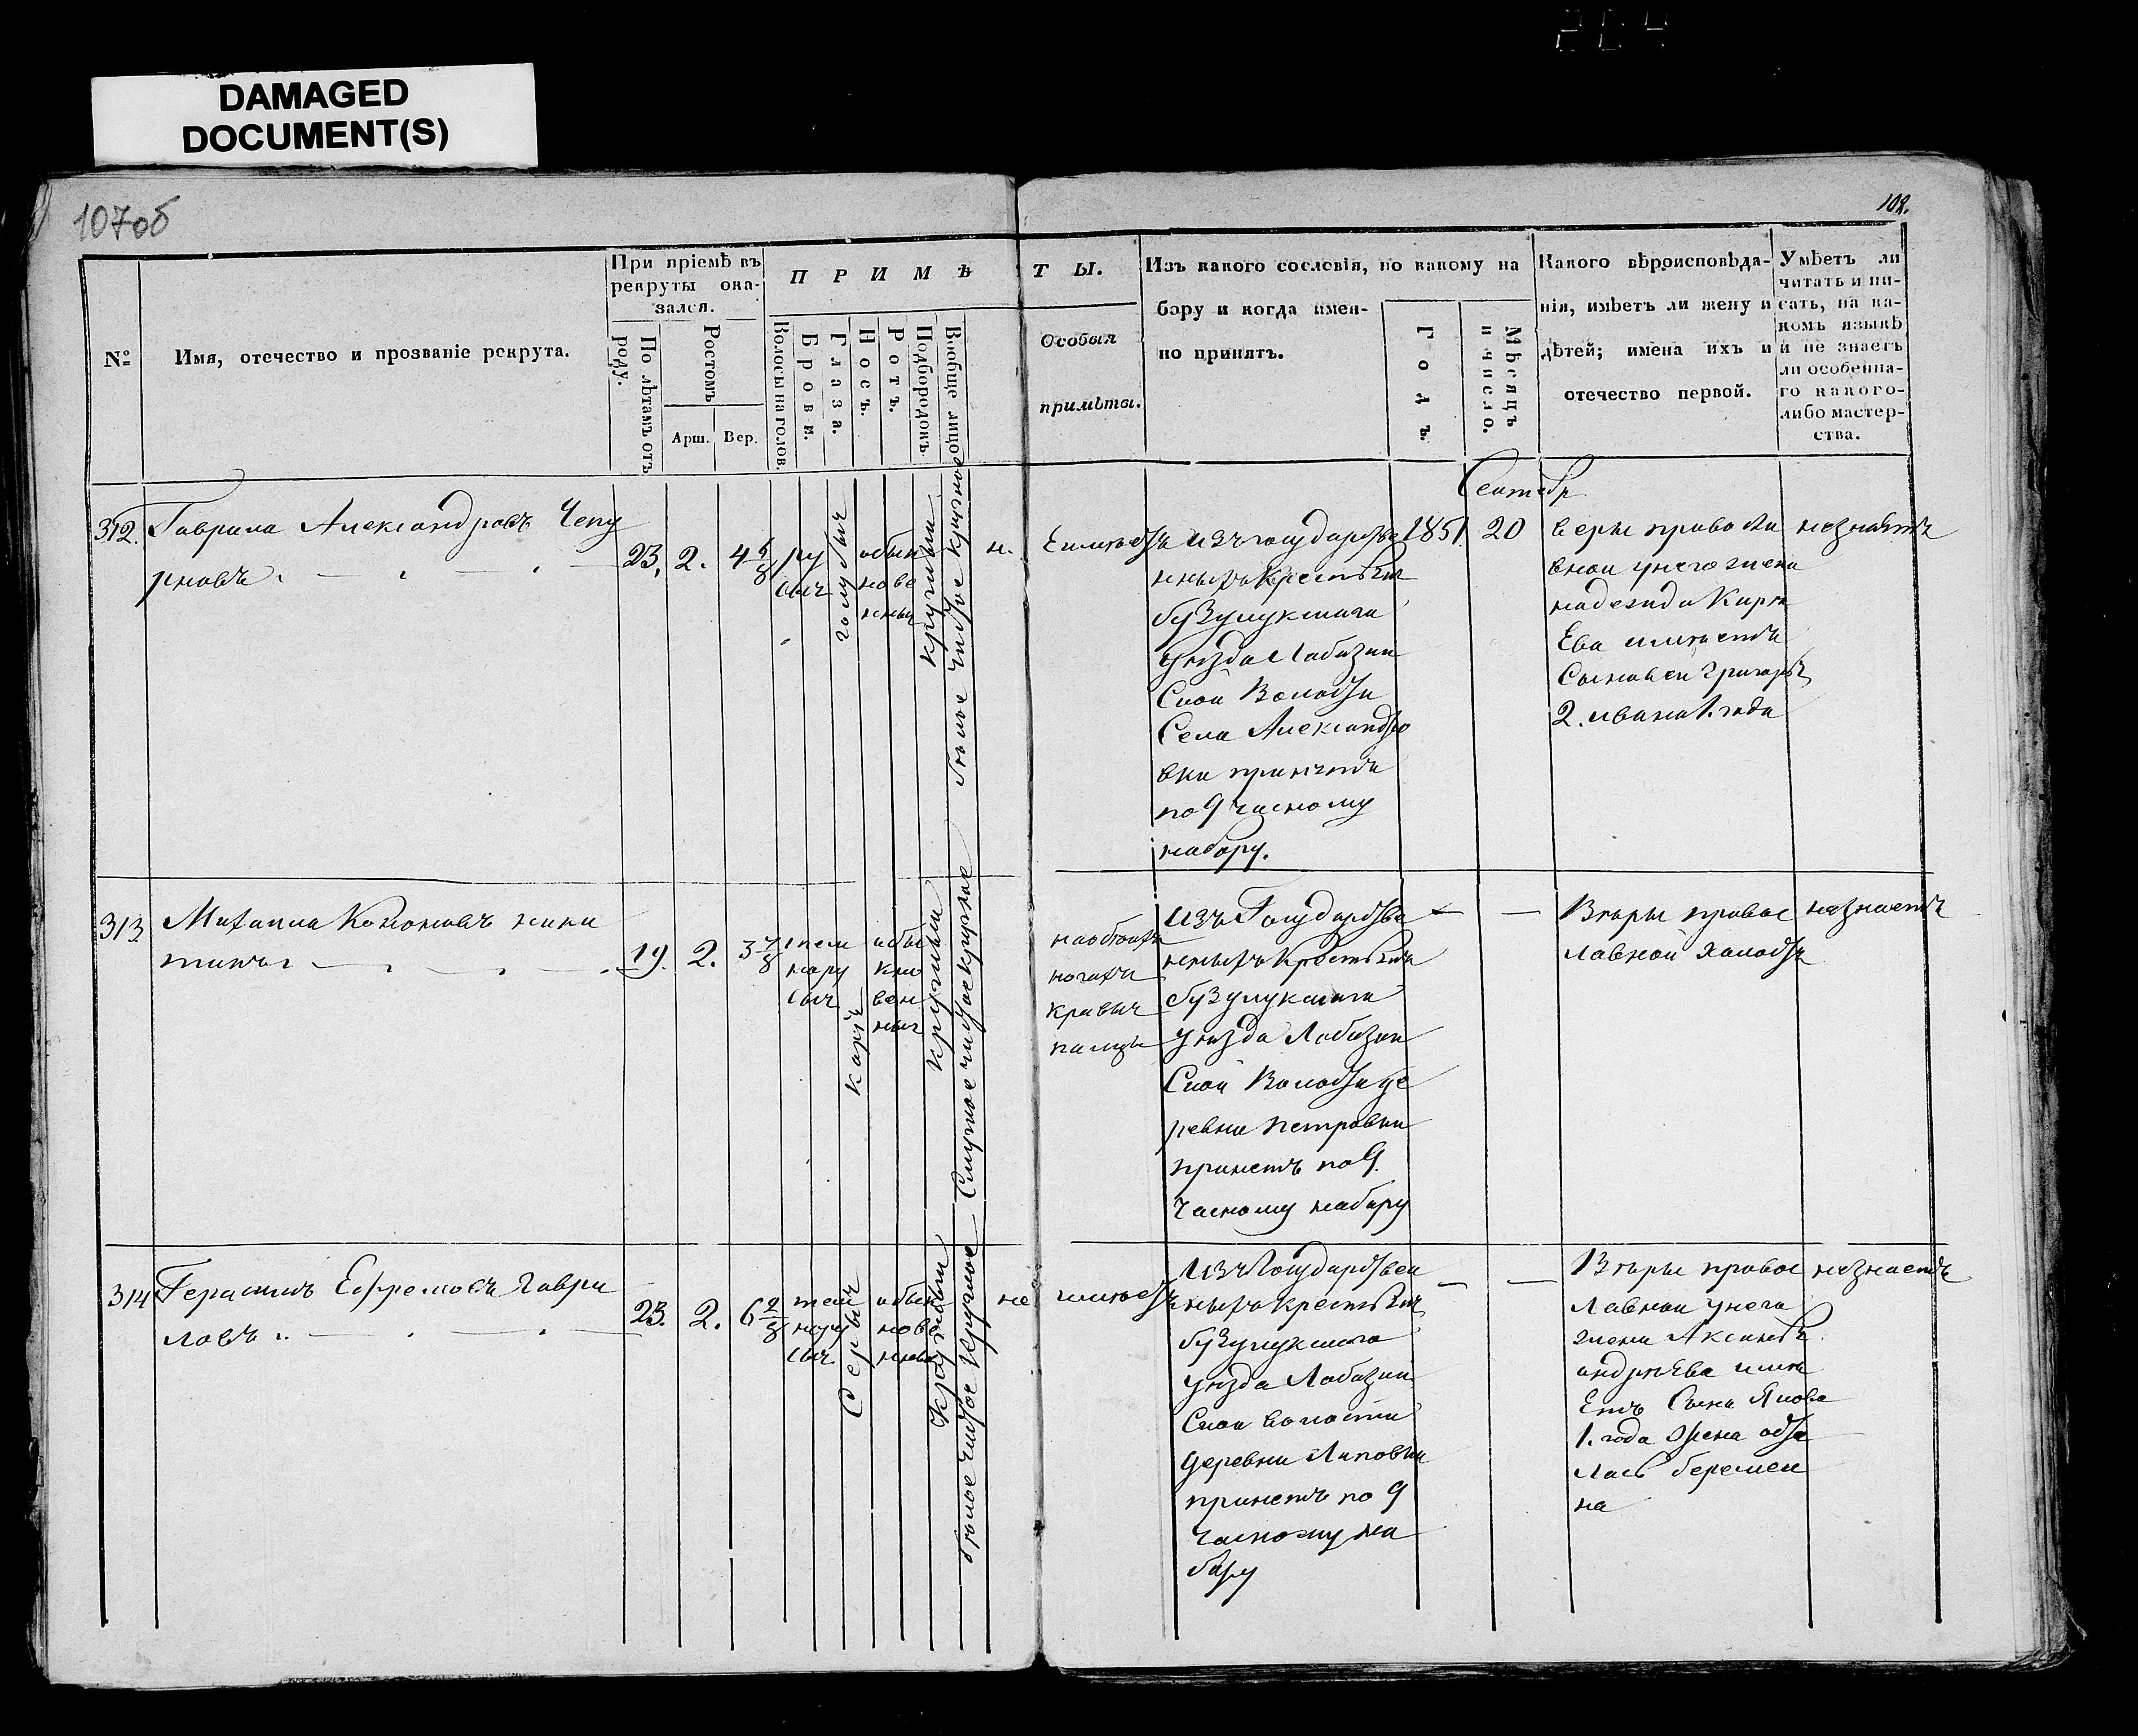 DAMAGED
DOCUMENT(S)
107об
108.
№
Имя, отечество и прозваніе рекрута.
При пріемѣ въ
рекруты ока-
зался.
По лѣтамъ отъ
роду.
Ростомъ
Арш.
Вер.
ПРИМѢТЫ.
Волосы на голов.
Брови.
Глаза.
Носъ.
Ротъ.
Подбородокъ.
Вообще лицо
Особыя
примѣты.
Изъ какого сословія, по какому на
бору и когда имен-
но принятъ.
Годъ.
Мѣсяцъ
и число.
Какого вѣроисповѣда-
нія, имѣетъ ли жену и
дѣтей; имена ихъ и
отечество первой.
Умѣетъ ли
читать и пи-
сать, на ка-
комъ языкѣ
и не знаетъ
ли особенна-
го какого-
либо мастер-
ства.
312.
Гаврила Александровъ Чепу
рновъ.
23.
2.
4 6/8
ру
сыя
голубыя
обык
нове
нныи
круглыи
белое чистое круглое
не
имѣетъ
изъ государстве
нныхъ крестьянъ
бузулукскаго
уезда Лабазин
Ской Волости
Села Александро
вки принятъ
по 9 часному
набору.
1851
Сентебр
20
веры правосла
вной унего жена
надежда Кирѣ
Ева имѣетъ
Сыновеи Григорья
2. ивана 1. года
незнаетъ
313.
Михаила Кононовъ ники
тинъ.
19.
2.
3 7/8
тем
нору
сыя
карія
обы
кно
вен
ныя
круглыи
Смуглое чистое круглое
наобоихъ
ногахъ
кривыя
пальцы
изъ Государстве
нныхъ крестьянъ
бузулукскаго
уезда Лабазин
Ской Волости де
ревни петровки
принетъ по 9.
часному набору
Вѣры правос
лавной холостъ
незнаетъ
314
Герасимъ Ефремовъ Гаври
ловъ.
23.
2.
6 2/8
тем
нору
сыя
Серыя
обык
нове
нныи
круглыи
белое чистое круглое
не
имѣетъ
изъ Государствен
ныхъ крестьянъ
бузулукскаго
уезда Лабазин
Ской волости
деревни Липовки
принетъ по 9
часному на
бору
Вѣры правос
лавной унего
жена Аксинья
андрѣЕва имѣ
Етъ Сына Якова
1. года Жена оста
лась беремен
на
незнаетъ